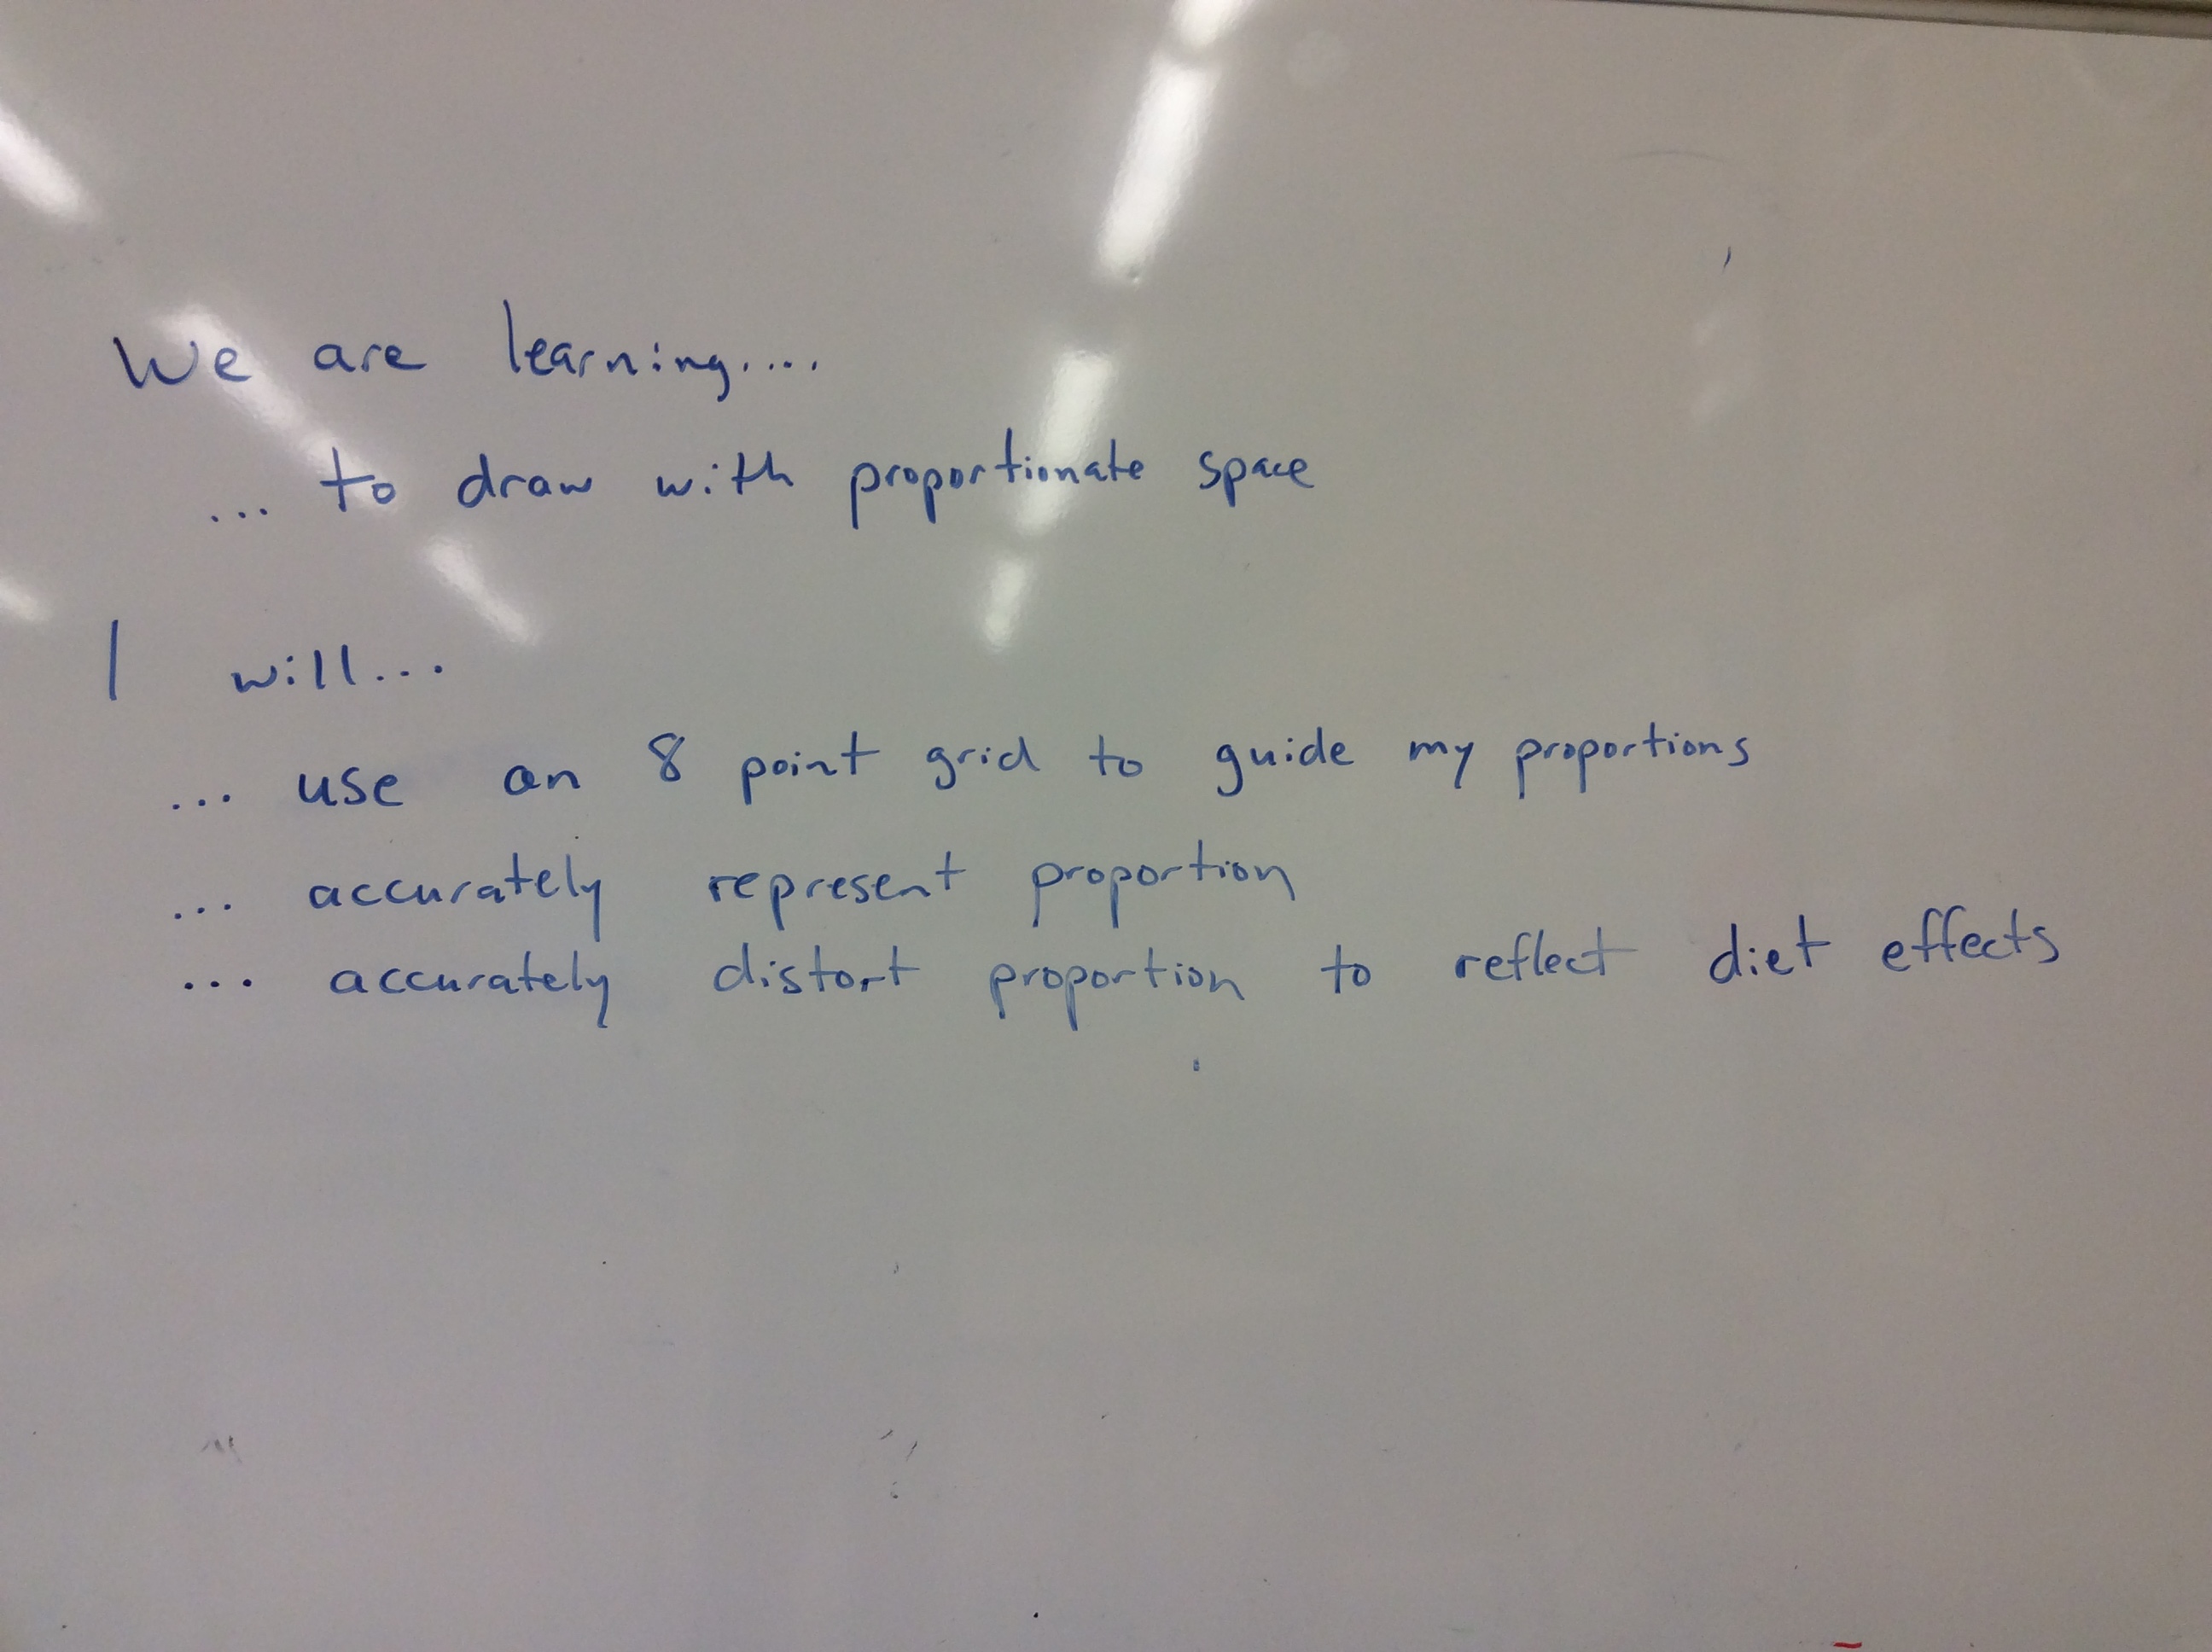 We are learning....
... to draw with proportionate space
I will...
... use an 8 point grid to guide my proportions
... accurately represent proportion
... accurately distort proportion to reflect diet effects